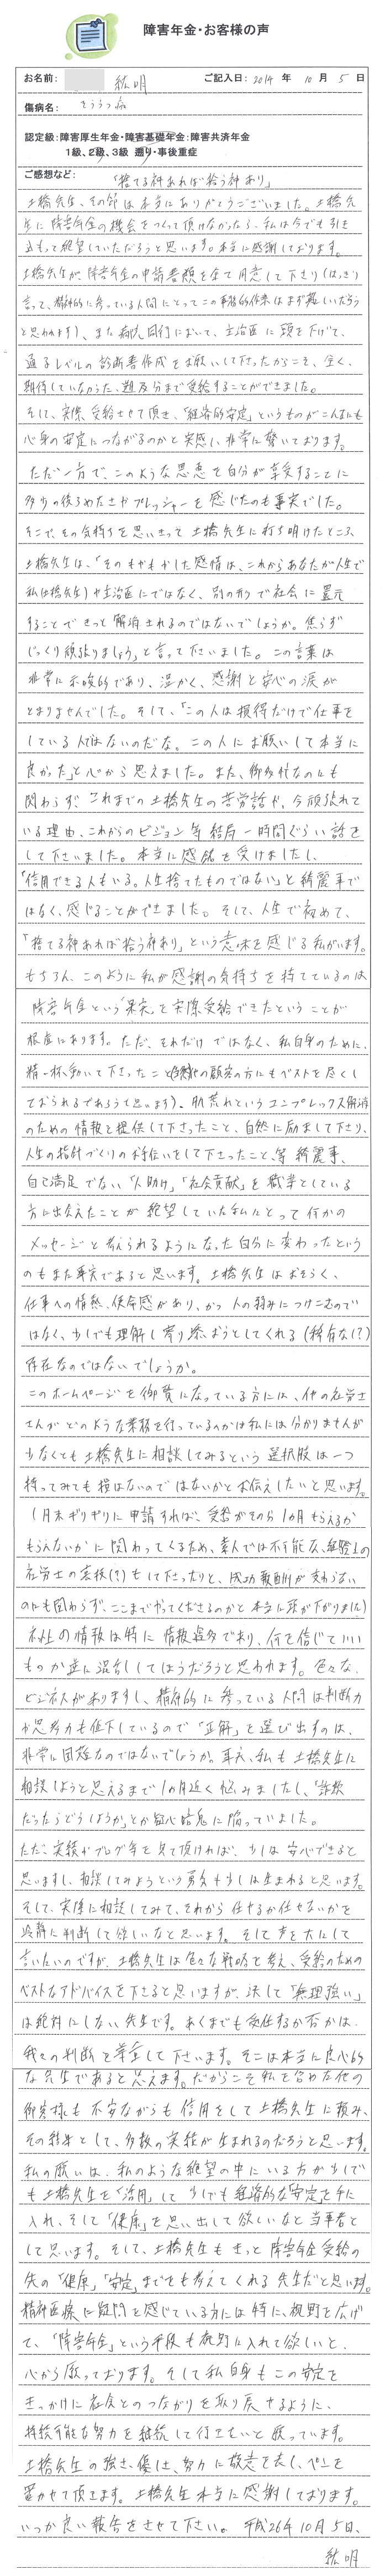 障害年金・お客様の声
お名前: 紘明 ご記入日: 2014 年 10 月 5 日
傷病名: そううつ病
認定級:障害厚生年金・障害基礎年金:障害共済年金
1級、2級、3級 遡り・事後重症
ご感想など:
「捨てる神あれば拾う神あり」
土橋先生、その節は本当にありがとうございました。土橋先
生に障害年金の機会をつくって頂けなかったら、私は今でも引き
こもって絶望していただろうと思います。本当に感謝しております。
土橋先生が、障害年金の申請書類を全て用意して下さり(はっきり
言って、精神的に参っている人間にとってこの事務的作業はまず難しいだろう
と思われます)、また病院同行において、主治医に頭を下げて、
通るレベルの診断書作成をお願いして下さったからこそ、全く、
期待していなかった、遡及分まで受給することができました。
そして、実際、受給させて頂き、「経済的安定」というものがこんなにも
心身の安定につながるのかと実感し、非常に驚いております。
ただ一方で、このような恩恵を自分が享受することに
多少の後ろめたさやプレッシャーを感じたのも事実でした。
そこで、その気持ちを思いきって土橋先生に打ち明けたところ、
土橋先生は、「そのもやもやした感情は、これからあなたが人生で
私(土橋先生)や主治医にではなく、別の形で社会に還元
することできっと解消されるのではないでしょうか。焦らず
じっくり頑張りましょう」と言って下さいました。この言葉は
非常に示唆的であり、温かく、感謝と安心の涙が
とまりませんでした。そして、「この人は損得だけで仕事を
している人ではないのだな。この人にお願いして本当に
良かった」と心から思えました。また、御多忙なのにも
関わらず、これまでの土橋先生の苦労話や、今頑張れて
いる理由、これからのビジョン等結局一時間ぐらい話を
して下さいました。本当に感銘を受けましたし、
「信用できる人もいる。人生捨てたものではない」と綺麗事で
はなく、感じることができました。そして、人生で初めて、
「捨てる神あれば拾う神あり」という意味を感じる私がいます。
もちろん、このように私が感謝の気持ちを持てているのは
障害年金という「果実」を実際受給できたということが
根底にあります。ただ、それだけではなく、私自身のために、
精一杯動いて下さったこと(他の顧客の方にもベストを尽くし
ておられるであろうと思います)、肌荒れというコンプレックス解消
のための情報を提供して下さったこと、自然に励まして下さり、
人生の指針づくりの手伝いをして下さったこと、等綺麗事、
自己満足でない「人助け」「社会貢献」を職業としている
方に出会えたことが絶望していた私にとって何かの
メッセージと考えられるようになった自分に変わったという
のもまた事実であると思います。土橋先生はおそらく、
仕事への情熱、使命感があり、かつ人の弱みにつけこむので
はなく、少しでも理解し寄り添おうとしてくれる(稀有な!?)
存在なのではないでしょうか。
このホームページを御覧になっている方には、他の社労士
さんがどのような業務を行っているのかは私には分かりませんが
少なくとも土橋先生に相談してみるという選択肢は一つ
持ってみても損はないのではないかとお伝えしたいと思います。
(月末ギリギリに申請すれば、受給がその分1か月もらえるか
もらえないかに関わってくるため、素人では不可能な、経験上の
社労士の裏技(?)もして下さったりと、成功報酬が変わらない
のにも関わらず、ここまでやってくださるのかと本当に頭が下がりました)
ネット上の情報は特に情報過多であり、何を信じていい
ものか逆に混乱してしまうだろうと思われます。色々な
ビジネスがありますし、精神的に参っている人間は判断力
や思考力も低下しているので「正解」を選び出すのは、
非常に困難なのではないでしょうか。事実、私も土橋先生に
相談しようと思えるまで1か月近く悩みましたし、「詐欺
だったらどうしようか」とか疑心暗鬼に陥っていました。
ただ、実績やブログ等を見て頂ければ、少しは安心できると
思いますし、相談してみようという勇気も少しは生まれると思います。
そして、実際に相談してみて、それから任せるか任せないかを
冷静に判断して欲しいなと思います。そして声を大にして
言いたいのですが、土橋先生は色々な戦略を考え、受給のための
ベストなアドバイスを下さると思いますが、決して「無理強い」
は絶対にしない先生です。あくまでも受任するか否かは、
我々の判断を尊重して下さいます。そこは本当に良心的
な先生であると思えます。だからこそ私を含めた他の
御客様も不安ながらも信用をして土橋先生に頼み、
その結果として、多数の実績が生まれるのだろうと思います。
私の願いは、私のような絶望の中にいる方が少しで
も土橋先生を「活用」して少しでも経済的な安定を手に
入れ、そして「健康」を思い出して欲しいなと当事者と
して思います。そして、土橋先生もきっと障害年金受給の
先の「健康」「安定」までをも考えてくれる先生だと思います。
精神医療に疑問を感じている方には特に、視野を広げ
て、「障害年金」という手段も視野に入れて欲しいと、
心から願っております。そして私自身もこの安定を
きっかけに社会とのつながりを取り戻せるように、
持続可能な努力を継続して行きたいと願っています。
土橋先生の強さ、優しさ、努力に敬意を表し、ペンを
置かせて頂きます。土橋先生本当に感謝しております。
いつか良い報告をさせて下さい。平成26年10月5日、
紘明